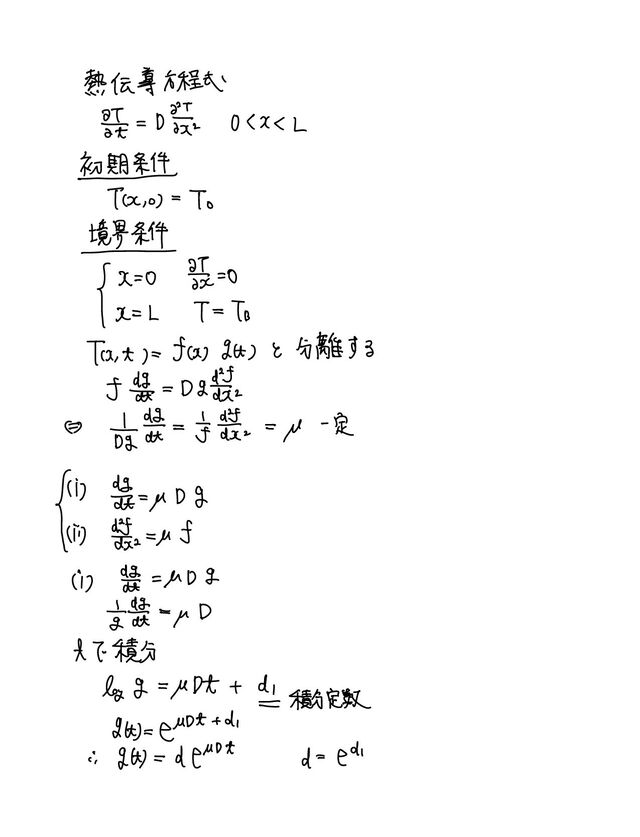 熱伝導方程式
∂T/∂t = D ∂²T/∂x²  0<x<L
初期条件
T(x,0) = T₀
境界条件
{ x=0  ∂T/∂x=0
x=L  T=T₀
T(x,t)= f(x) g(t) と分離する
f dg/dt = D g d²f/dx²
⇔ 1/Dg dg/dt = 1/f d²f/dx² = μ 一定
{ (i) dg/dt = μ D g
(ii) d²f/dx² = μ f
(i) dg/dt = μ D g
1/g dg/dt = μ D
tで積分
log g = μDt + d₁ 積分定数
g(t)= e^(μDt + d₁)
∴ g(t) = d e^(μDt)  d = e^(d₁)